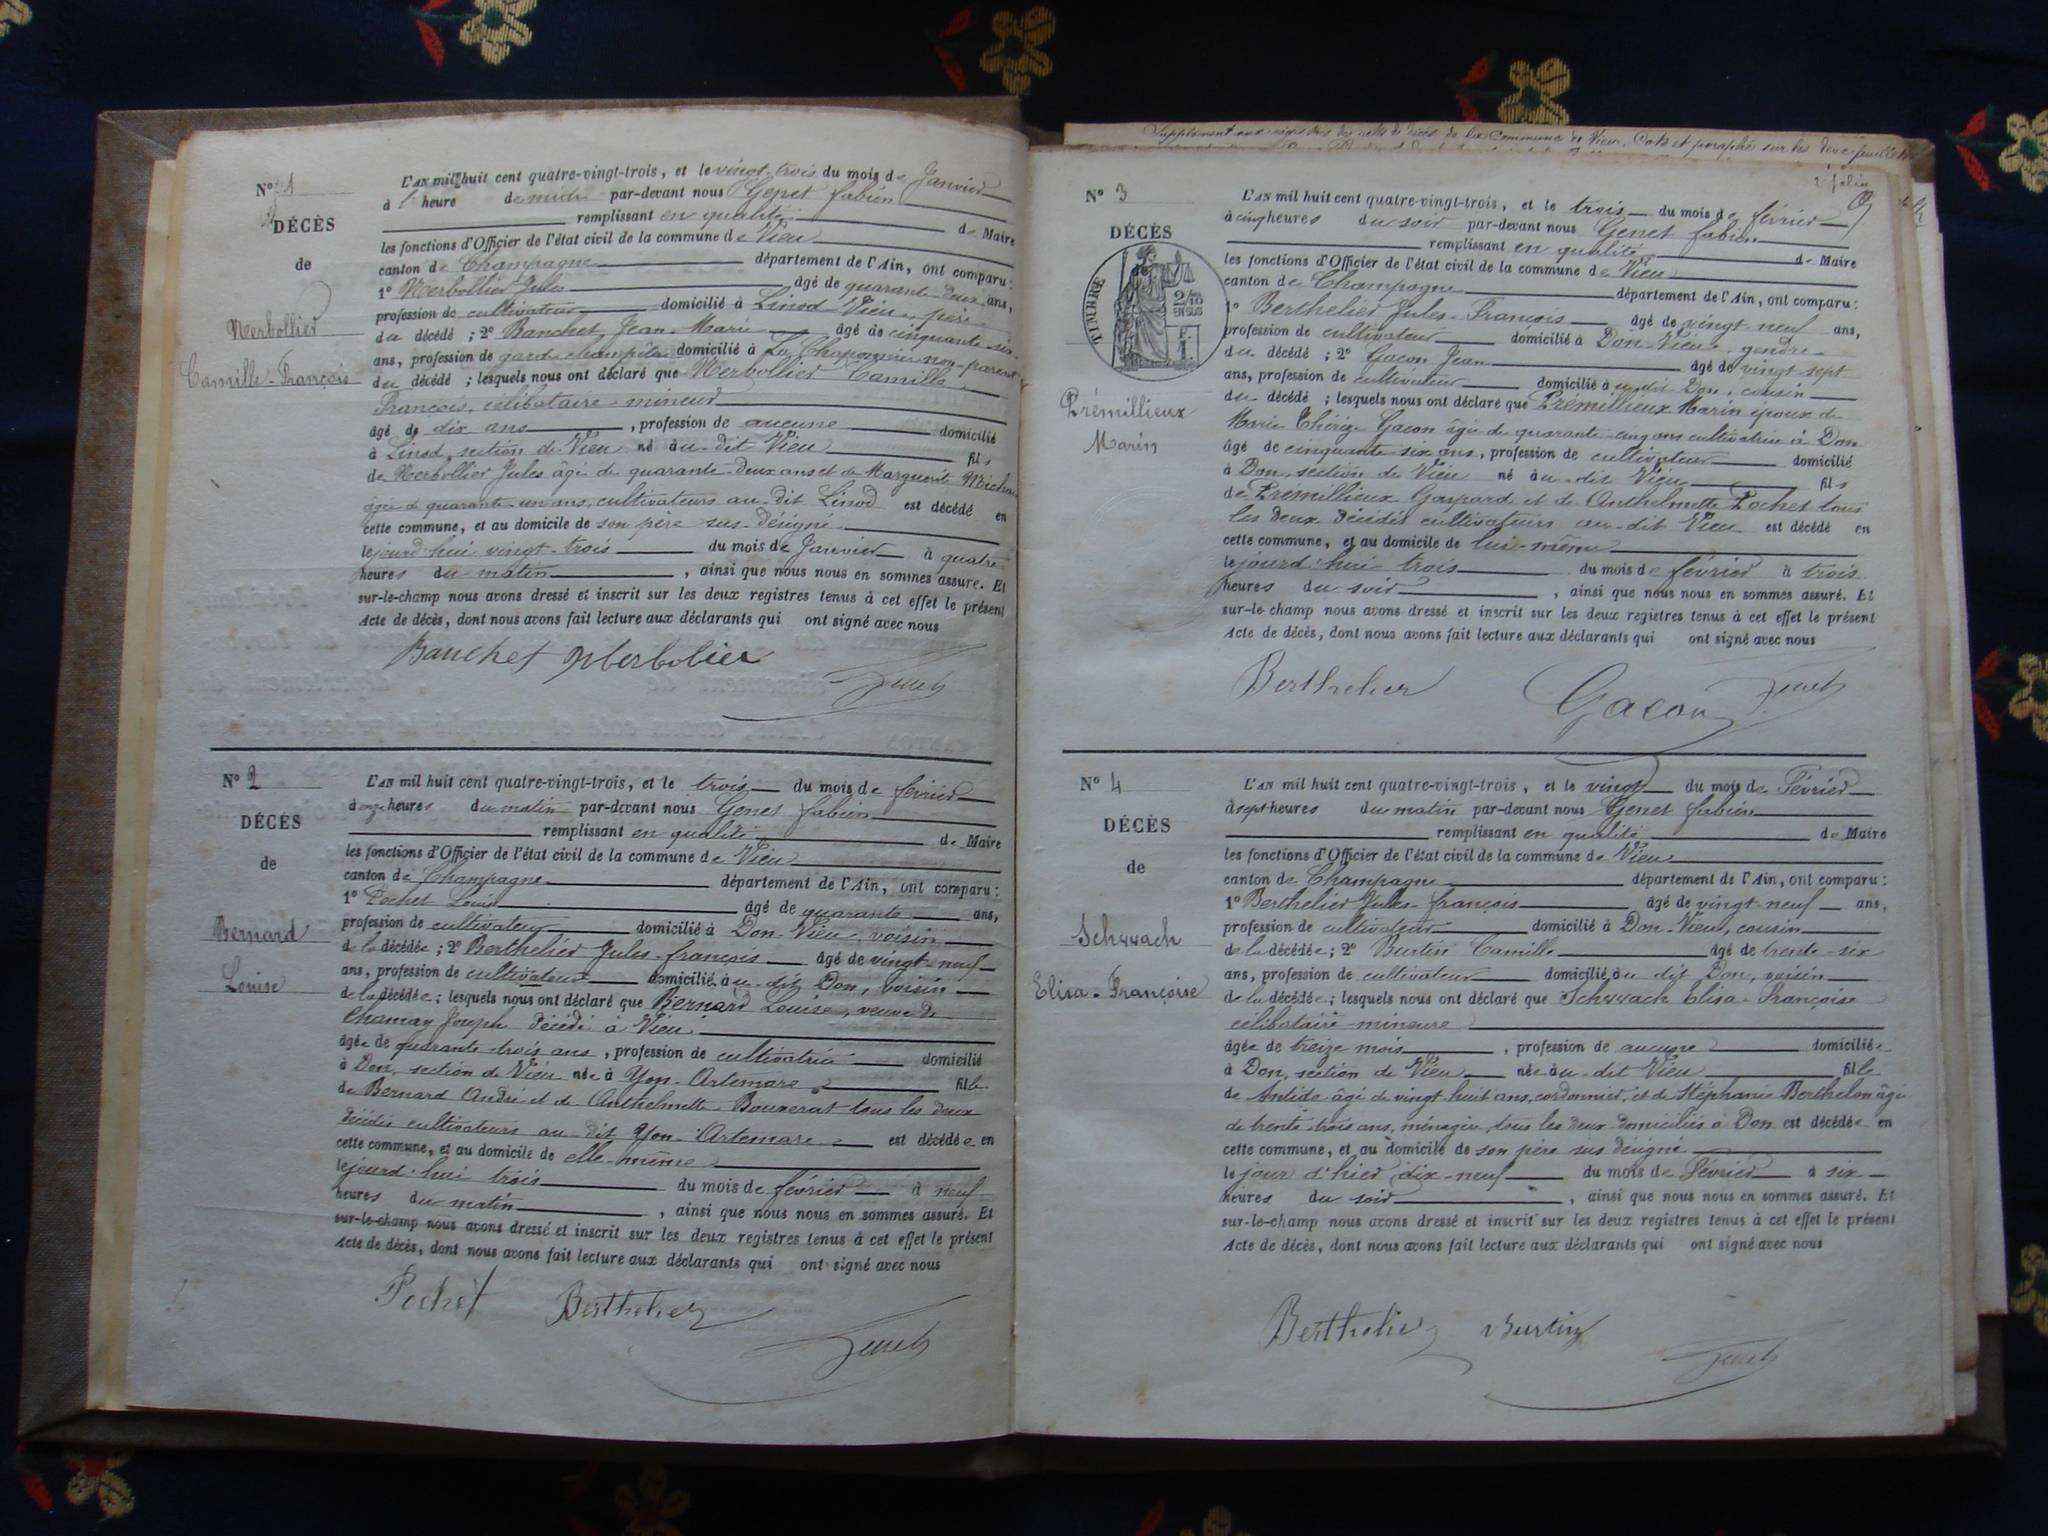 N° 1
DÉCÈS
de
Merbollier
Camille-François
L'AN mil huit cent quatre-vingt-trois, et le vingt-trois du mois de Janvier
à 1 heure de midi par-devant nous Genet fabien
remplissant en qualité de Maire
les fonctions d'Officier de l'état civil de la commune de Vieu
canton de Champagne département de l'Ain, ont comparu :
1° Merbollier Jules âgé de quarante-deux ans,
profession de cultivateur domicilié à Linod-Vieu, père
du décédé ; 2° Banchet Jean-Marie âgé de cinquante-six
ans, profession de garde champêtre domicilié à La Chaponnière non-parent
du décédé ; lesquels nous ont déclaré que Merbollier Camille
François, célibataire-mineur
âgé de dix ans, profession de aucune domicilié
à Linod, section de Vieu né au-dit Vieu fils
de Merbollier Jules âgé de quarante-deux ans et de Marguerite
âgée de quarante-un ans, cultivateurs au-dit Linod est décédé en
cette commune, et au domicile de son père sus-désigné
le jourd'hui vingt-trois du mois de Janvier à quatre
heures du matin, ainsi que nous nous en sommes assuré. Et
sur-le-champ nous avons dressé et inscrit sur les deux registres tenus à cet effet le présent
Acte de décès, dont nous avons fait lecture aux déclarants qui ont signé avec nous
Banchet Merbolier
Genet
N° 2
DÉCÈS
de
Bernard
Louise
L'AN mil huit cent quatre-vingt-trois, et le trois du mois de février
à onze heures du matin par-devant nous Genet fabien
remplissant en qualité de Maire
les fonctions d'Officier de l'état civil de la commune de Vieu
canton de Champagne département de l'Ain, ont comparu :
1° Pochet Louis âgé de quarante ans,
profession de cultivateur domicilié à Don-Vieu, voisin
de la décédée ; 2° Berthelier Jules-françois âgé de vingt-neuf
ans, profession de cultivateur domicilié au-dit Don, voisin
de la décédée ; lesquels nous ont déclaré que Bernard Louise, veuve de
Chamay Joseph décédé à Vieu
âgée de quarante-trois ans, profession de cultivatrice domicilié
à Don, section de Vieu née à Yon-Artemare fille
de Bernard André et de Anthelmette Bouverat tous les deux
décédés cultivateurs au-dit Yon-Artemare est décédée en
cette commune, et au domicile de elle-même
le jourd'hui trois du mois de février à neuf
heures du matin, ainsi que nous nous en sommes assuré. Et
sur-le-champ nous avons dressé et inscrit sur les deux registres tenus à cet effet le présent
Acte de décès, dont nous avons fait lecture aux déclarants qui ont signé avec nous
Pochet Berthelier
Genet
Supplément aux registres des actes de décès de la Commune de Vieu, Coté et paraphé sur les deux feuillets
N° 3
DÉCÈS
TIMBRE
2/10
EN SUS
F.
1.
Prémillieux
Marin
L'AN mil huit cent quatre-vingt-trois, et le trois du mois de février
à cinq heures du soir par-devant nous Genet fabien
remplissant en qualité de Maire
les fonctions d'Officier de l'état civil de la commune de Vieu
canton de Champagne département de l'Ain, ont comparu :
1° Berthelier Jules-François âgé de vingt-neuf ans,
profession de cultivateur domicilié à Don-Vieu, gendre
du décédé ; 2° Gacon Jean âgé de vingt-sept
ans, profession de cultivateur domicilié à Don, cousin
du décédé ; lesquels nous ont déclaré que Prémillieux Marin époux de
Marie Thérèze Gacon âgée de quarante-cinq ans cultivatrice à Don
âgé de cinquante-six ans, profession de cultivateur domicilié
à Don, section de Vieu né au-dit Vieu fils
de Prémillieux Gaspard et de Anthelmette Pochet tous
les deux décédés cultivateurs au-dit Vieu est décédé en
cette commune, et au domicile de lui-même
le jourd'hui trois du mois de février à trois
heures du soir, ainsi que nous nous en sommes assuré. Et
sur-le-champ nous avons dressé et inscrit sur les deux registres tenus à cet effet le présent
Acte de décès, dont nous avons fait lecture aux déclarants qui ont signé avec nous
Berthelier Gacon Genet
N° 4
DÉCÈS
de
Schwach
Elisa-Françoise
L'AN mil huit cent quatre-vingt-trois, et le vingt du mois de Février
à sept heures du matin par-devant nous Genet fabien
remplissant en qualité de Maire
les fonctions d'Officier de l'état civil de la commune de Vieu
canton de Champagne département de l'Ain, ont comparu :
1° Berthelier Jules-françois âgé de vingt-neuf ans,
profession de cultivateur domicilié à Don-Vieu, cousin
de la décédée ; 2° Burtin Camille âgé de trente-six
ans, profession de cultivateur domicilié au dit Don, voisin
de la décédée ; lesquels nous ont déclaré que Schwach Elisa-Françoise
célibataire-mineure
âgée de treize mois, profession de aucune domiciliée
à Don, section de Vieu née au-dit Vieu fille
de Antide âgé de vingt huit ans, cordonnier, et de Stéphanie Berthelon âgée
de trente-trois ans, ménagère tous les deux domiciliés à Don est décédée en
cette commune, et au domicile de son père sus désigné
le jour d'hier dix-neuf du mois de Février à six
heures du soir, ainsi que nous nous en sommes assuré. Et
sur-le-champ nous avons dressé et inscrit sur les deux registres tenus à cet effet le présent
Acte de décès, dont nous avons fait lecture aux déclarants qui ont signé avec nous
Berthelier Burtin
Genet